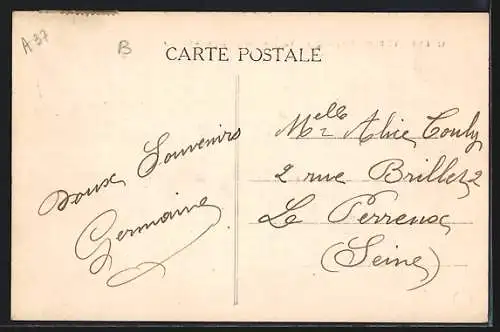 A37
B
CARTE POSTALE
Doux Souvenirs
Germaine
Melle Alice Couly
2 rue Brillet 2
Le Perreux
(Seine)